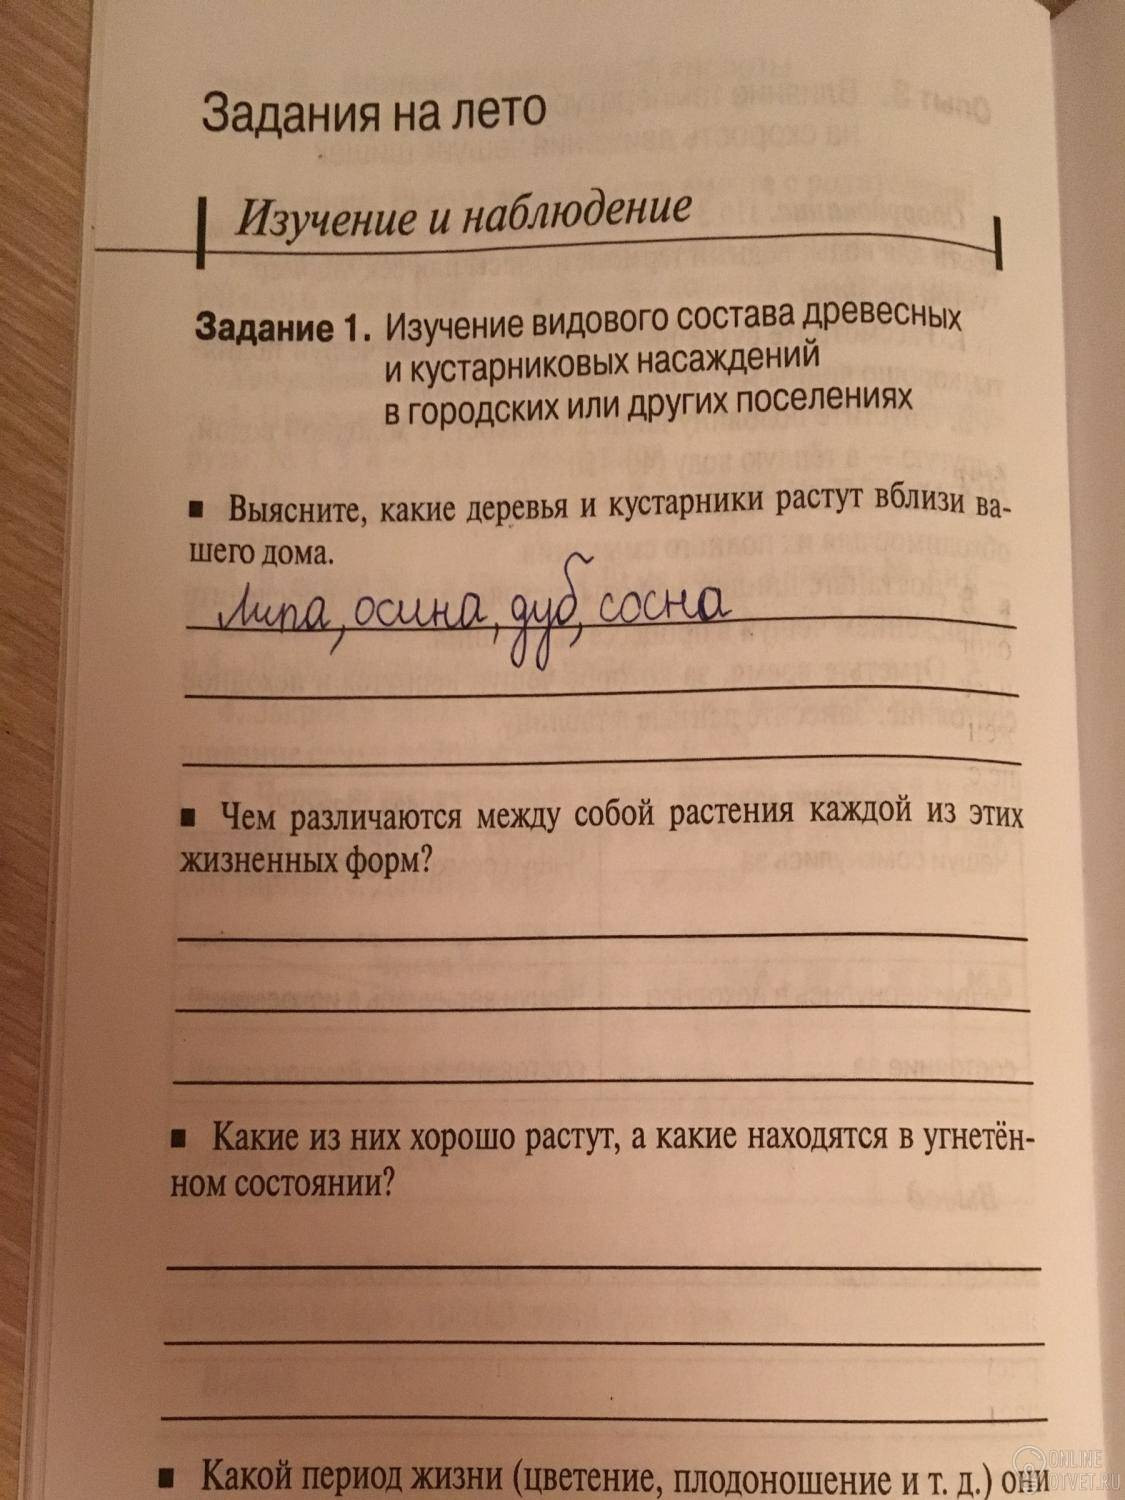 Задания на лето
Изучение и наблюдение
Задание 1. Изучение видового состава древесных
и кустарниковых насаждений
в городских или других поселениях
■ Выясните, какие деревья и кустарники растут вблизи ва-
шего дома.
Липа, осина, дуб, сосна
■ Чем различаются между собой растения каждой из этих
жизненных форм?
■ Какие из них хорошо растут, а какие находятся в угнетён-
ном состоянии?
■ Какой период жизни (цветение, плодоношение и т. д.) они
ONLINE
OTVET.RU